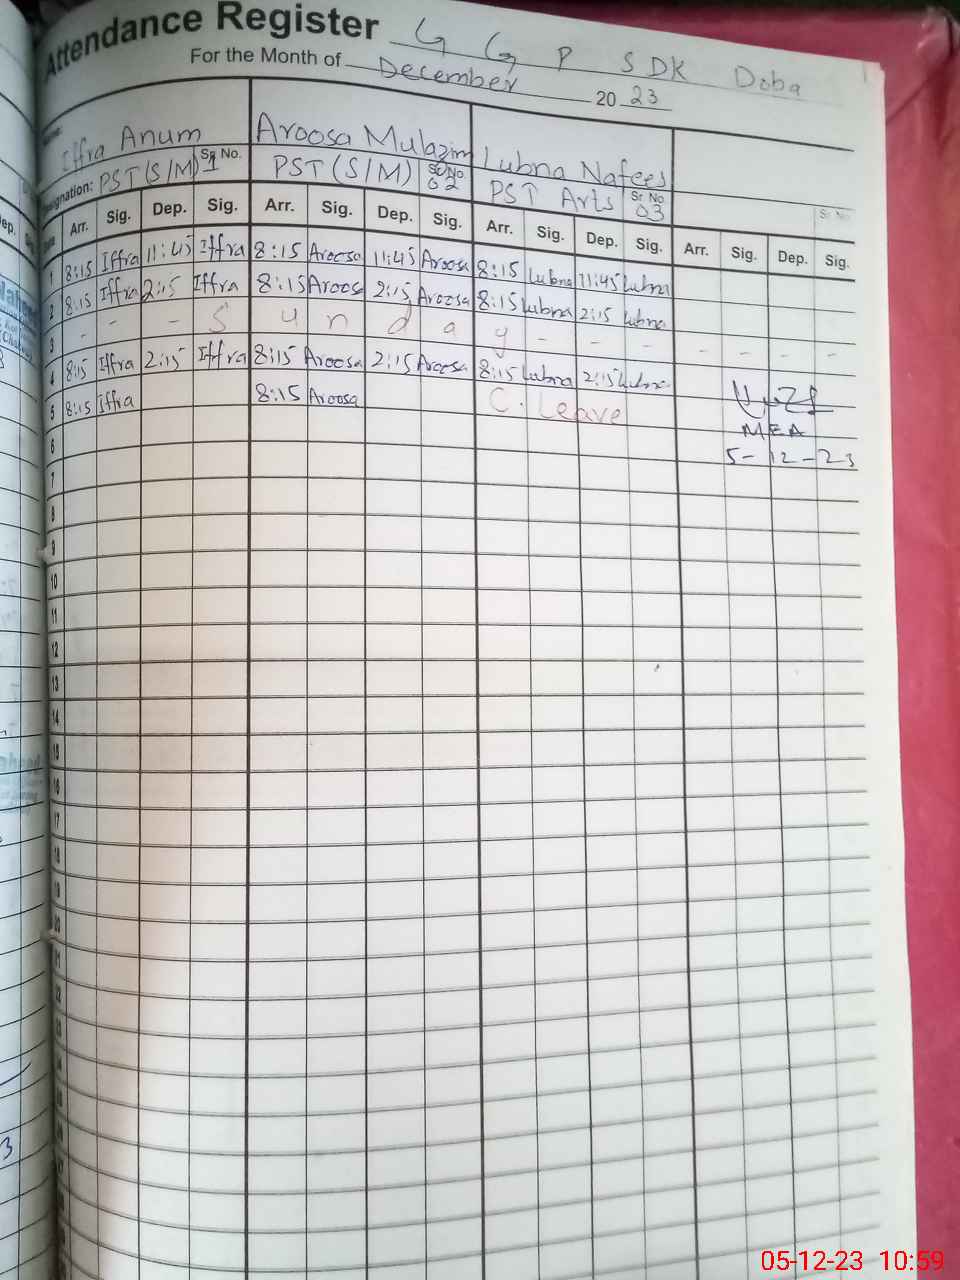 Attendance Register G G P S DK Doba
For the Month of December 20 23
Name: Iffra Anum Aroosa Mulazim Lubna Nafees
Designation: PST(S/M) Sr No. 1 PST (S/M) Sr No. 02 PST Arts Sr No. 03 Sr No.
Date Arr. Sig. Dep. Sig. Arr. Sig. Dep. Sig. Arr. Sig. Dep. Sig. Arr. Sig. Dep. Sig.
1 8:15 Iffra 11:45 Iffra 8:15 Aroosa 11:45 Aroosa 8:15 Lubna 11:45 Lubna
2 8:15 Iffra 2:15 Iffra 8:15 Aroosa 2:15 Aroosa 8:15 Lubna 2:15 Lubna
3 - - - S u n d a y - - - - - - -
4 8:15 Iffra 2:15 Iffra 8:15 Aroosa 2:15 Aroosa 8:15 Lubna 2:15 Lubna
5 8:15 Iffra 8:15 Aroosa C. Leave
6 MEA
7 5-12-23
8
9
10
11
12
13
14
15
16
17
18
19
20
21
22
23
05-12-23 10:59